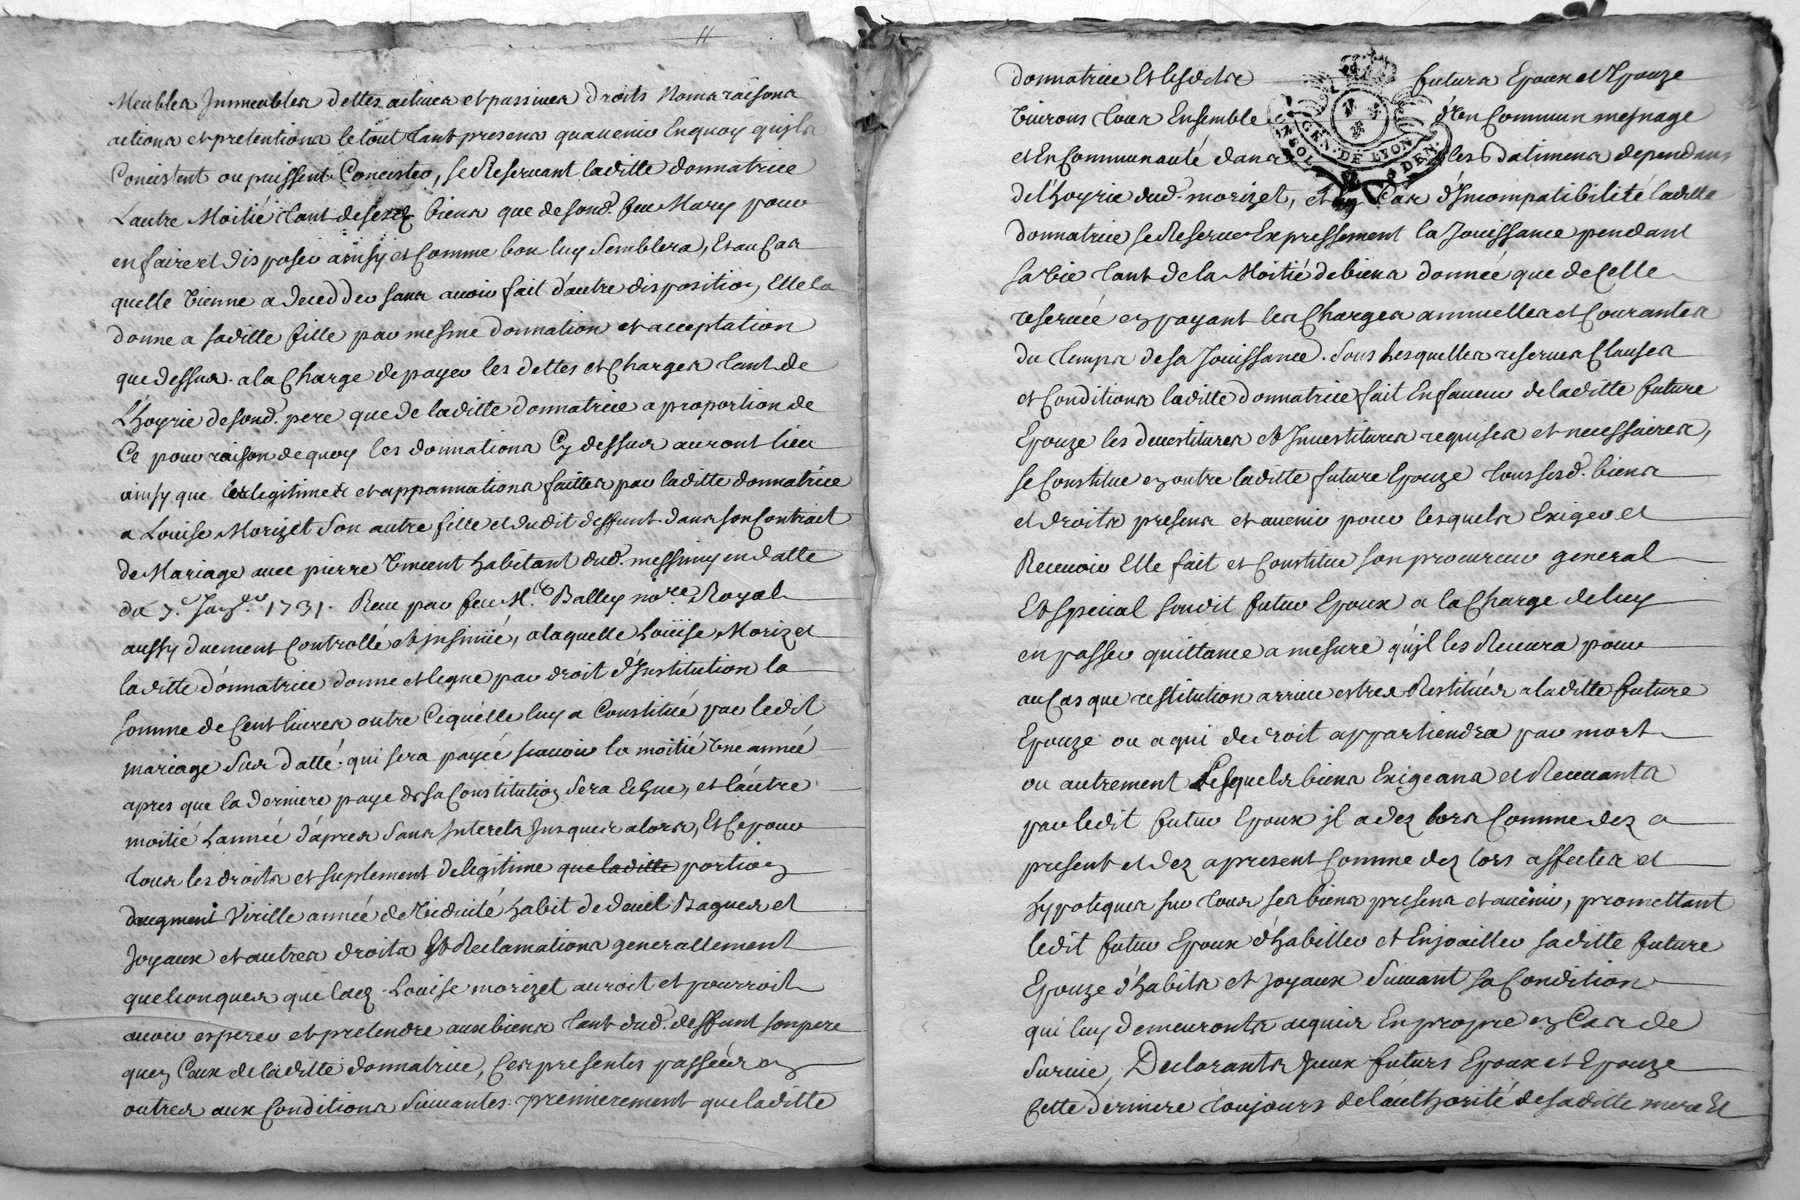 Meubles Immeubles dettes actives et passives droits Noms raisons
actions et pretentions le tout tant presens quavenir Enquoy quils
Concistent ou puissent Concister, se Reservant laditte donnatrice
Lautre Moitié tant de sesd. biens que de sond. feu Mary pour
en faire et disposer ainsy et Comme bon luy Semblera, Et au Cas
quelle Vienne a decedder sans avoir fait d'autre disposition, Elle la
donne a saditte fille par mesme donnation et acceptation
que dessus. a la Charge de payer les dettes et Charges tant de
L'hoyrie de sond. pere que de laditte donnatrice a proportion de
Ce pour raison de quoy les donnations Cy dessus auront lieu
ainsy que les legitimes et appannations faittes par laditte donnatrice
a Louise Morizet Son autre fille et dudit deffunt dans son Contract
de Mariage avec pierre Vincent habitant dud. messimy en datte
du 7.e 1731. Receu par feu M.e Balley no.re Royal
aussy duement Controllé et insinüé, a laquelle Loüise Morizet
laditte donnatrice donne et legue par droit d'Institution la
somme de Cent livres outre Ce quelle luy a Constitué par ledit
mariage Sus datté. qui sera payée scavoir la moitié Une année
apres que la derniere paye de sa Constitution Sera Echue, et l'autre
moitié L'année d'apres Sans Interets Jusques alors, Et Ce pour
tous les droits et suplement de legitime que laditte portion
daugment Virille année de Viduité habit de deuil Bagues et
Joyaux et autres droits Et Reclamations generallement
quelconques que lad. Louise morizet auroit et pourroit
avoir esperer et pretendre aux biens tant dud. deffunt son pere
quen Ceux de laditte donnatrice, Ces presentes passées en
outres aux Conditions Suivantes. premierement que laditte
donnatrice Et lesdits futurs Epoux et Epouze
Vivrons tous Ensemble d'Un Commun mesnage
et En Communauté dans les Batimens dependans
de l'hoyrie dud. morizet, et en Cas d'Incompatibilité laditte
donnatrice se Reserve Expressement la Jouissance pendant
sa Vie tant de la Moitié de biens donnée que de Celle
reservée en payant les Charges annuelles et Courantes
du temps de sa Jouissance. Sous Lesquelles reserves Clauses
et Conditions laditte donnatrice fait En faveur de laditte future
Epouze les devestitures et Investitures requises et necessaires,
se Constitue en outre laditte future Epouze tous sesd. biens
et droits presens et avenir pour lesquels Exiger et
Recevoir Elle fait et Constitue son procureur general
Et special sondit futur Epoux a la Charge de luy
en passer quittance a mesure qu'il les Recevra pour
au Cas que restitution arrive estres Restitués a laditte future
Epouze ou a qui de droit appartiendra par mort
ou autrement Lesquels biens Exigeans et Recevants
par ledit futur Epoux il a dez lors Comme dez a
present et dez apresent Comme dez lors affectés et
hypotequés sur tous ses biens presens et avenir, promettant
ledit futur Epoux d'habiller et Enjoailler saditte future
Epouze d'habits et joyaux Suivant sa Condition
qui luy demeuronts acquis En propre en Cas de
Survie, Declarants Iceux futurs Epoux et Epouze
Cette derniere toujours de l'authorité de saditte mere Et
GEN. DE LYON